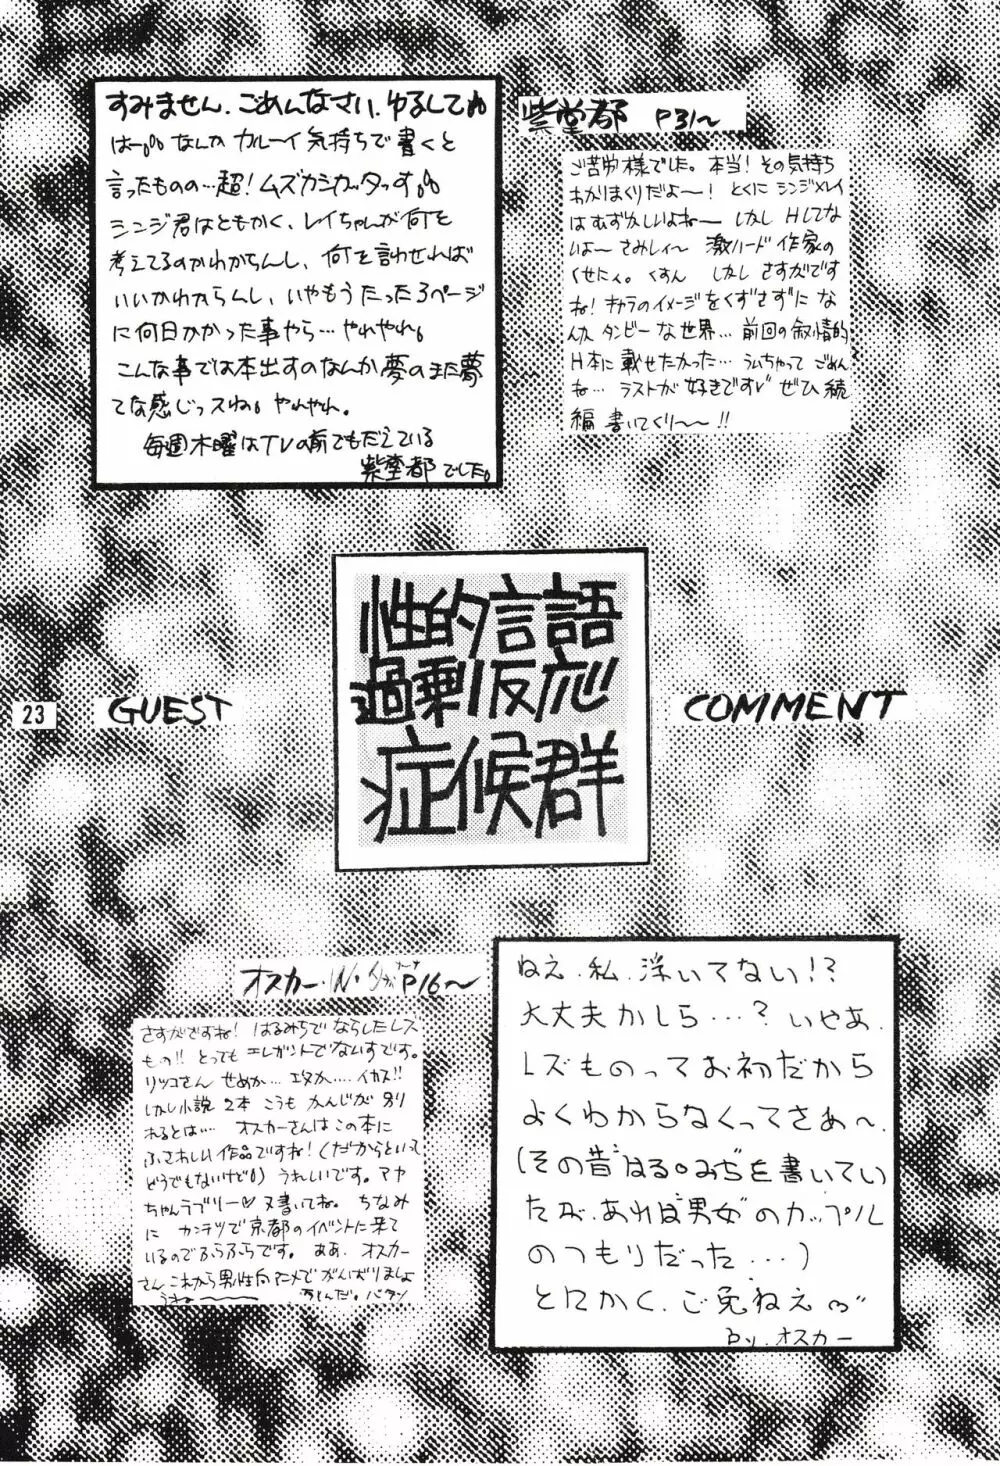 すみません、ごめんなさい、ゆるして
はー なんか カルーイ気持ちで書くと
言ったものの…超!ムズカシカッタっす。
シンジ君はともかく、レイちゃんが何を
考えてるのかわからんし、何を言わせれば
いいかわからんし、いやもうたった3ページ
に何日かかった事やら…やれやれ。
こんな事では本出すのなんか夢のまた夢
てな感じっスね。やれやれ。
毎週木曜はTVの前でもだえている
紫堂都でした。
紫堂都 P31〜
ご苦労様でした。本当!その気持ち
わかりまくりだよ〜!とくにシンジ×レイ
はむずかしいよね〜しかしHしてな
いよ〜さみしィ〜 激ハード作家の
くせにィ。くすん しかしさすがです
ね!キャラのイメージをくずさずにな
んか タンビーな世界…前回の叙情的
H本に載せたかった…ういちゃってごめん
ね…ラストが好きです ぜひ続
編書いてくり〜〜!!
性的言語
過剰反応
症候群
23
GUEST
COMMENT
オスカー・W・ P16〜
さすがですね!はるみちでならしたレズ
もの!!とってもエレガントでないすです。
リツコさん せめか…攻か…イカス!!
しかし小説2本 こうもかんじが別
れるとは… オスカーさんはこの本に
ふさわしい作品ですね!(だからといって
どうでもないけど)うれしいです。マヤ
ちゃんラブリー♡又書いてね。ちなみ
に カンテツで京都のイベントに来て
いるのでふらふらです。ああ、オスカー
さんこれから男性向アニメでがんばりましょ
うね〜 バタン
ねえ、私、浮いてない!?
大丈夫かしら…?いやあ、
レズものってお初だから
よくわからなくってさぁ〜、
(その昔はる。みちを書いてい
たが、あれは男女のカップル
のつもりだった…)
とにかく、ご免ねえ
By. オスカー